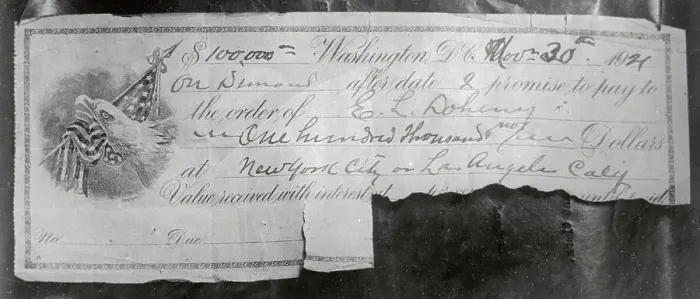 $100,000⁰⁰ Washington, D.C. Nov. 30th 1921
On Demand after date I promise to pay to
the order of E. L. Doheny
One hundred thousand no/100 Dollars
at New York City or Los Angeles Calif
Value received with interest at
No. Due